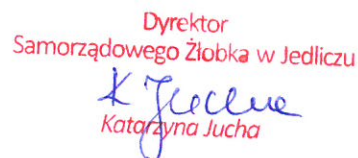 Dyrektor
Samorządowego Żłobka w Jedliczu
K Jucha
Katarzyna Jucha